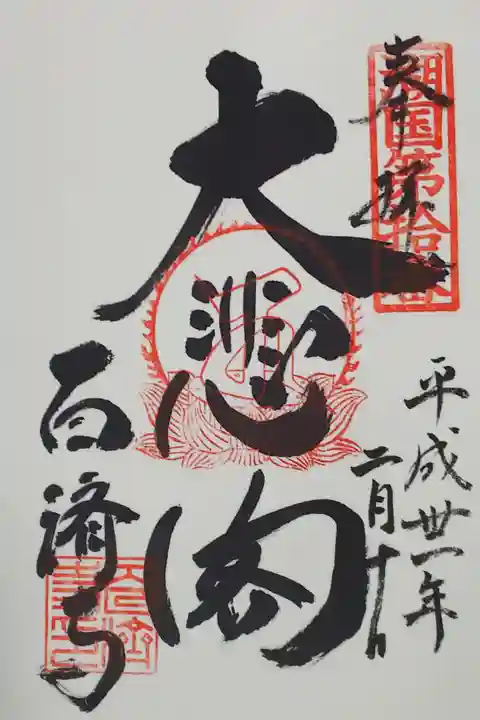 奉拝
国第拾
大悲閣
平成卅一年
二月十日
百済寺